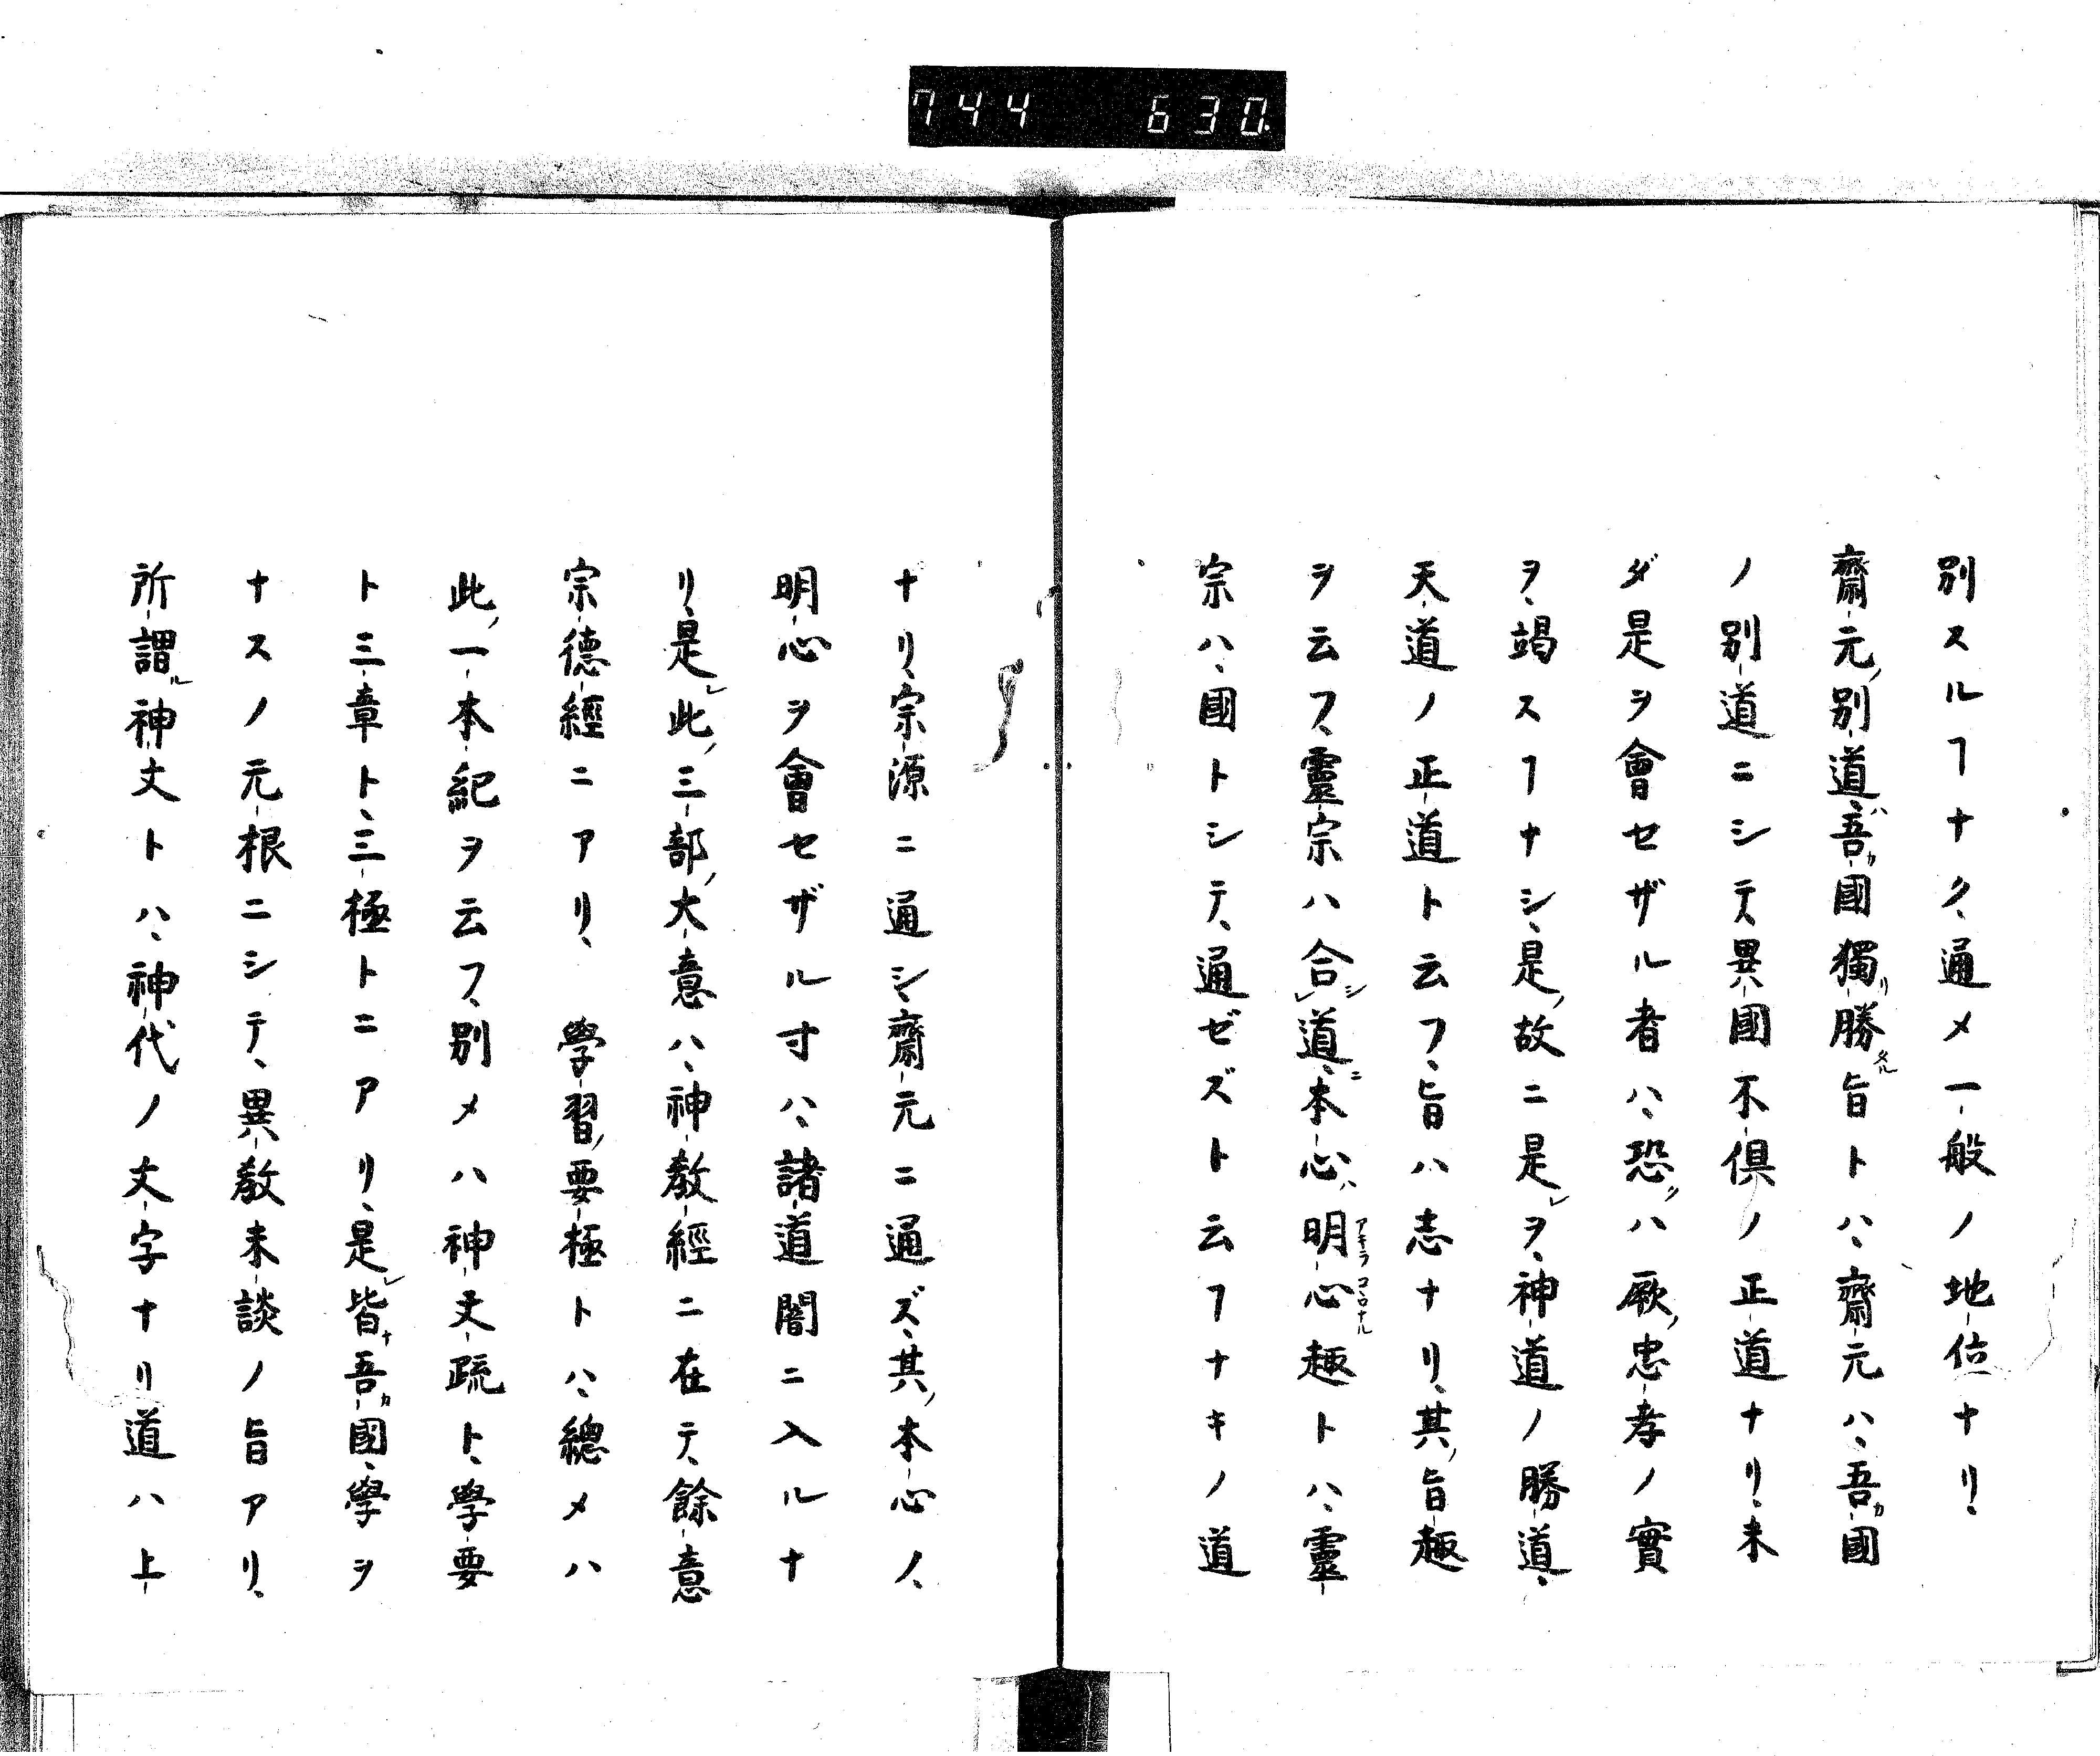 744 630
別スルヿナク、通メ一般ノ地位ナリ、
齋元ノ別道ハ、吾カ國獨リ勝タル旨トハ、齋元ハ、吾カ國
ノ別道ニシテ、異國不倶ノ正道ナリ、未
ダ是ヲ會セザル者ハ、恐クハ厥ノ忠孝ノ實
ヲ、竭スヿナシ、是ノ故ニ是レヲ、神道ノ勝道、
天道ノ正道ト云フ、旨ハ志ナリ、其ノ旨趣
ヲ云フ、靈宗ハ合シレ道ニ、本心ハ明心アキラコヽロナル趣トハ、靈
宗ハ、國トシテ、通ゼズト云フヿナキノ道
ナリ、宗源ニ通シ、齋元ニ通ズ、其ノ本心ノ、
明心ヲ會セザル寸ハ、諸道闇ニ入ルナ
リ、是レ此ノ三部ノ大意ハ、神教經ニ在テ、餘意
宗德經ニアリ、 學習ノ要極トハ、總メハ
此ノ一本紀ヲ云フ、別メハ神文疏ト、學要
ト三章ト、三極トニアリ、是レ皆ナ吾カ國、學ヲ
ナスノ元根ニシテ、異教未談ノ旨アリ、
所謂ル神文トハ、神代ノ文字ナリ道ハ上